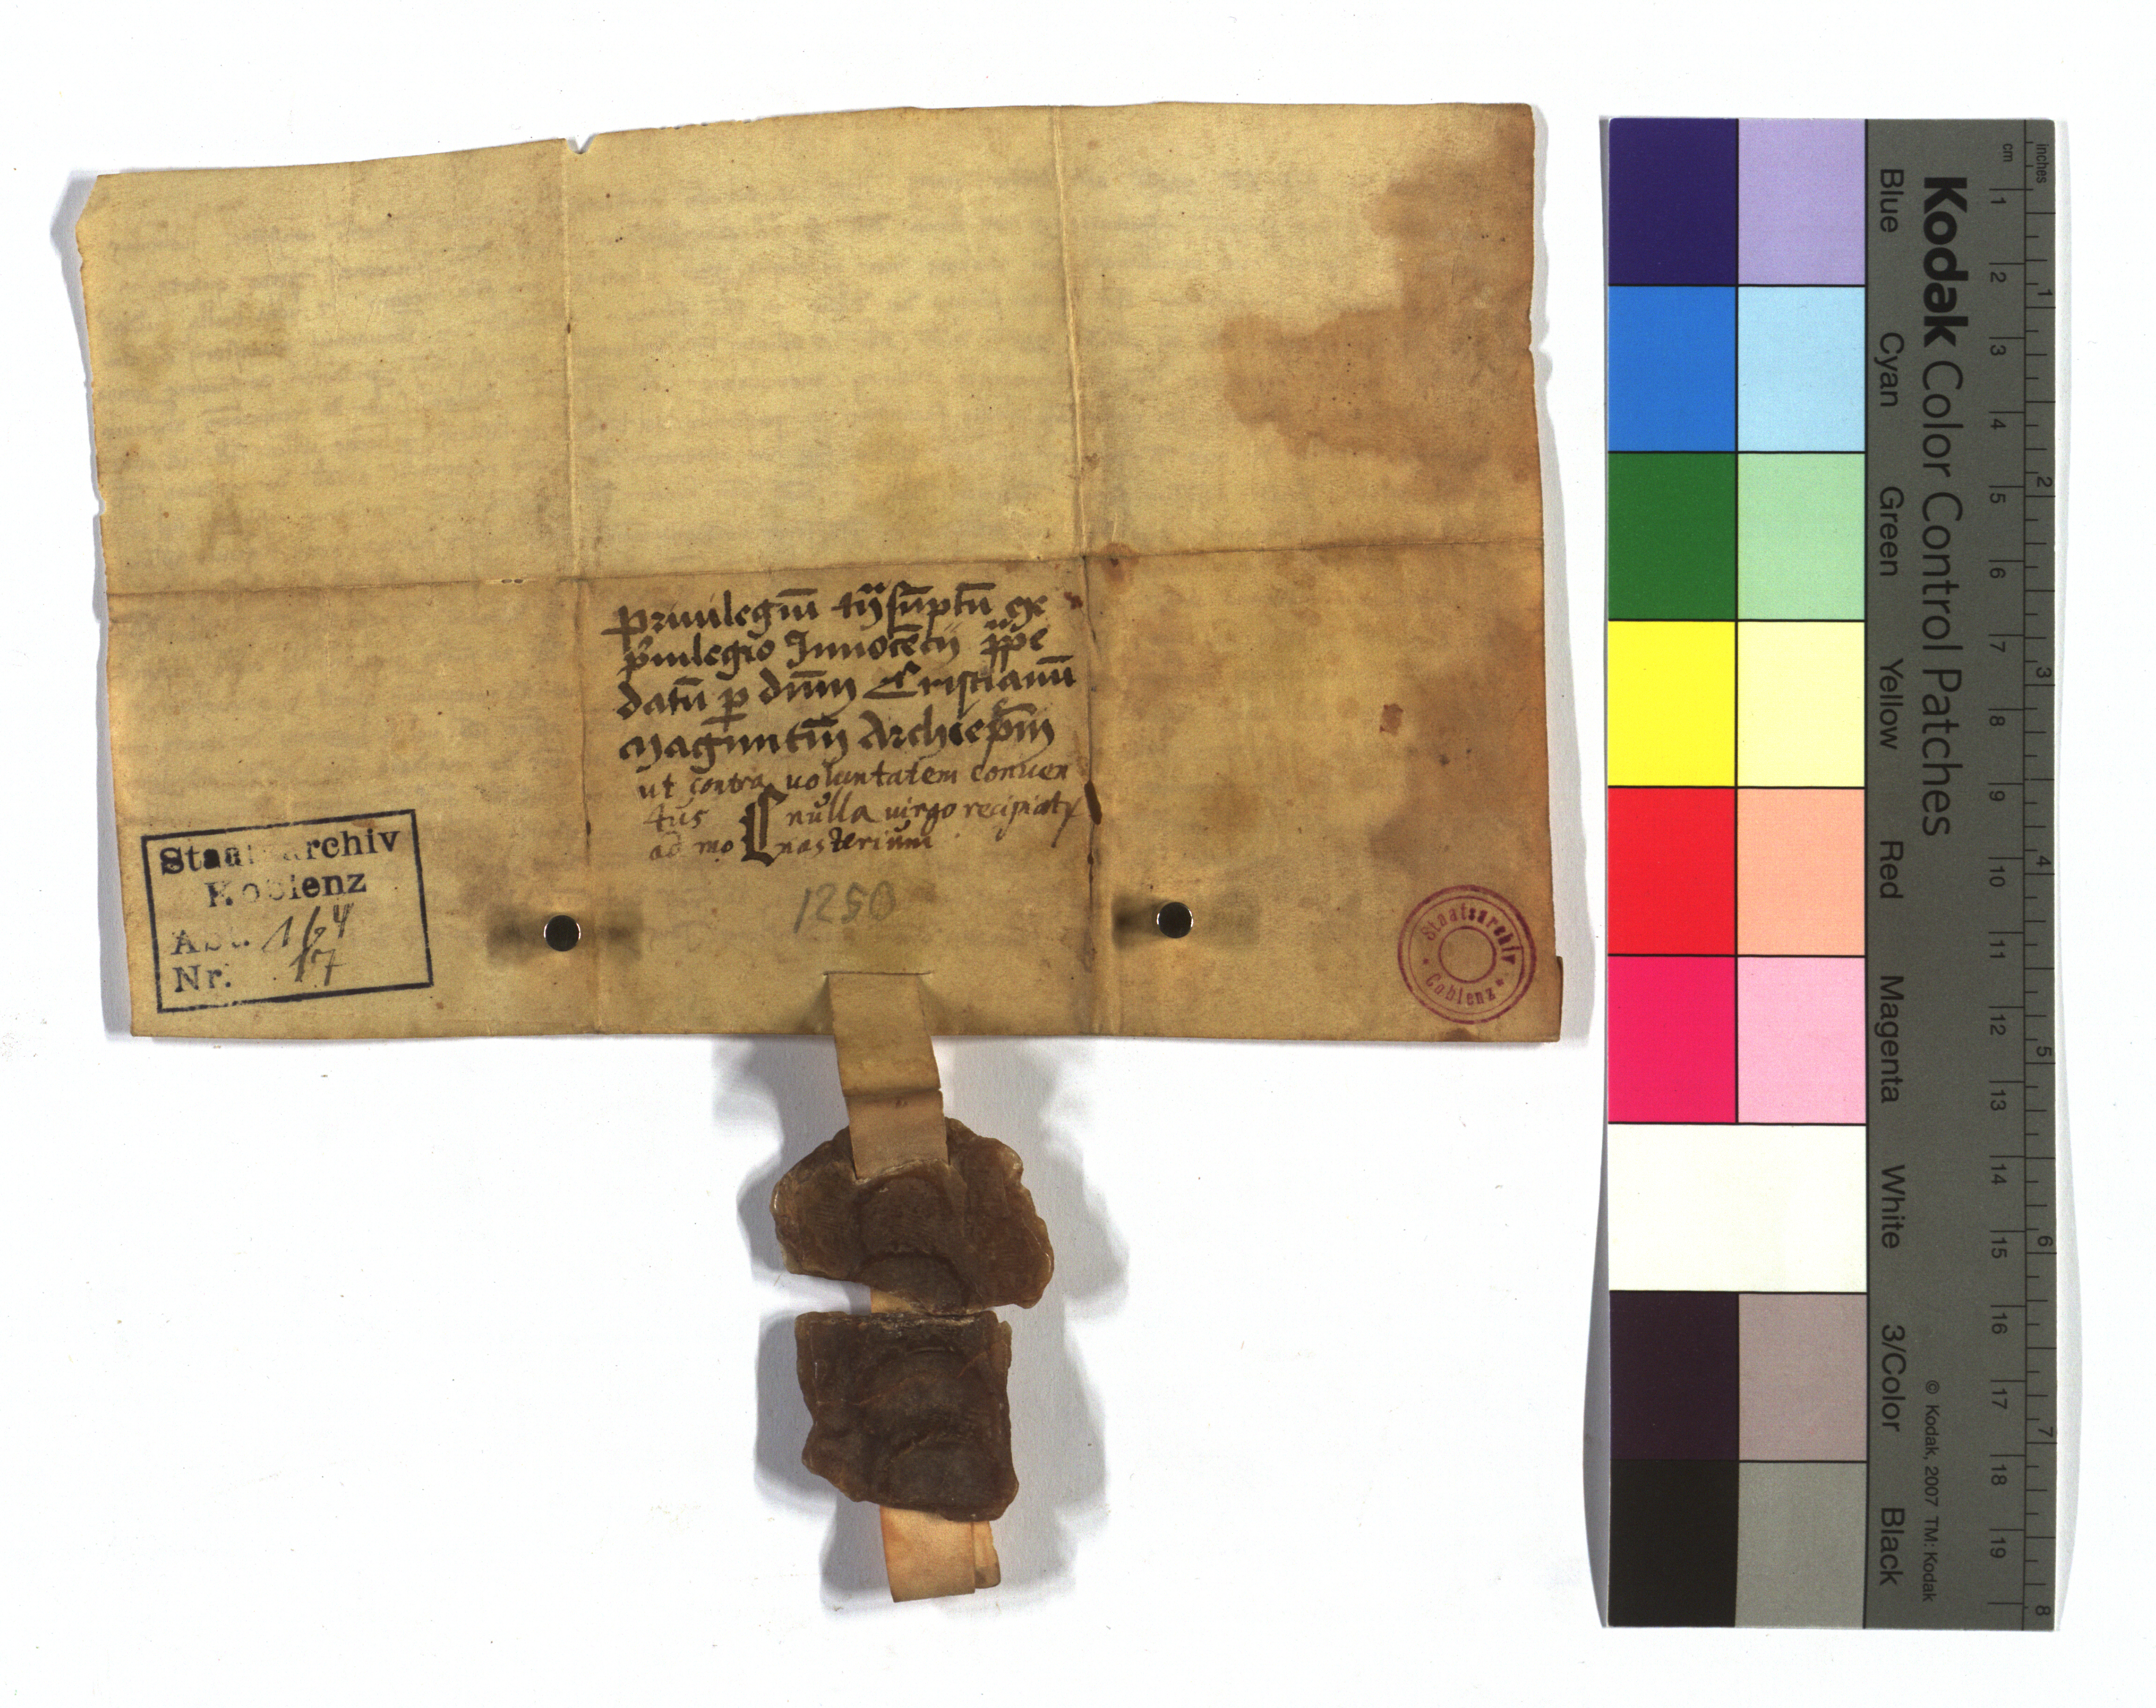 Priuilegiū tr̄sūptū ex
p̄uilegio Innocēcij pp̄e
datū p dn̄m Cristianū
Magūntin̄ Archiep̄m
ut contra uoluntatem conuen
tus nulla uirgo recipiatr
ad mo nasterium
1250
Staatsarchiv
Koblenz
Abt. 164
Nr. 17
Staatsarchiv
Coblenz
Kodak Color Control Patches
Blue Cyan Green Yellow Red Magenta White 3/Color Black
© Kodak, 2007 TM: Kodak
cm 1 2 3 4 5 6 7 8 9 10 11 12 13 14 15 16 17 18 19
inches 1 2 3 4 5 6 7 8